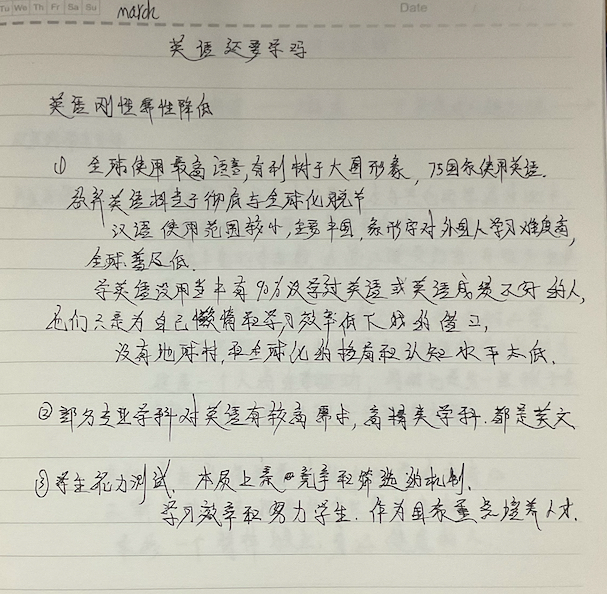 Tu We Th Fr Sa Su
march
Date
英语还要学吗
英语刚性需性降低
① 全球使用最高语言,有利树于大国形象, 75国家使用英语.
放弃英语相当于彻底与全球化脱节
汉语使用范围较小,主要中国,象形字对外国人学习难度高,
全球普及低.
学英语没用当中有90%没学过英语或英语成绩不好的人,
他们只是为自己懒惰和学习效率低下找的借口,
没有地球村,和全球化的格局和认知水平太低.
②部分专业学科对英语有较高要求,高精类学科.都是英文
③学生能力测试. 本质上是 竞争和筛选的机制.
学习效率和努力学生. 作为国家重点培养人才.